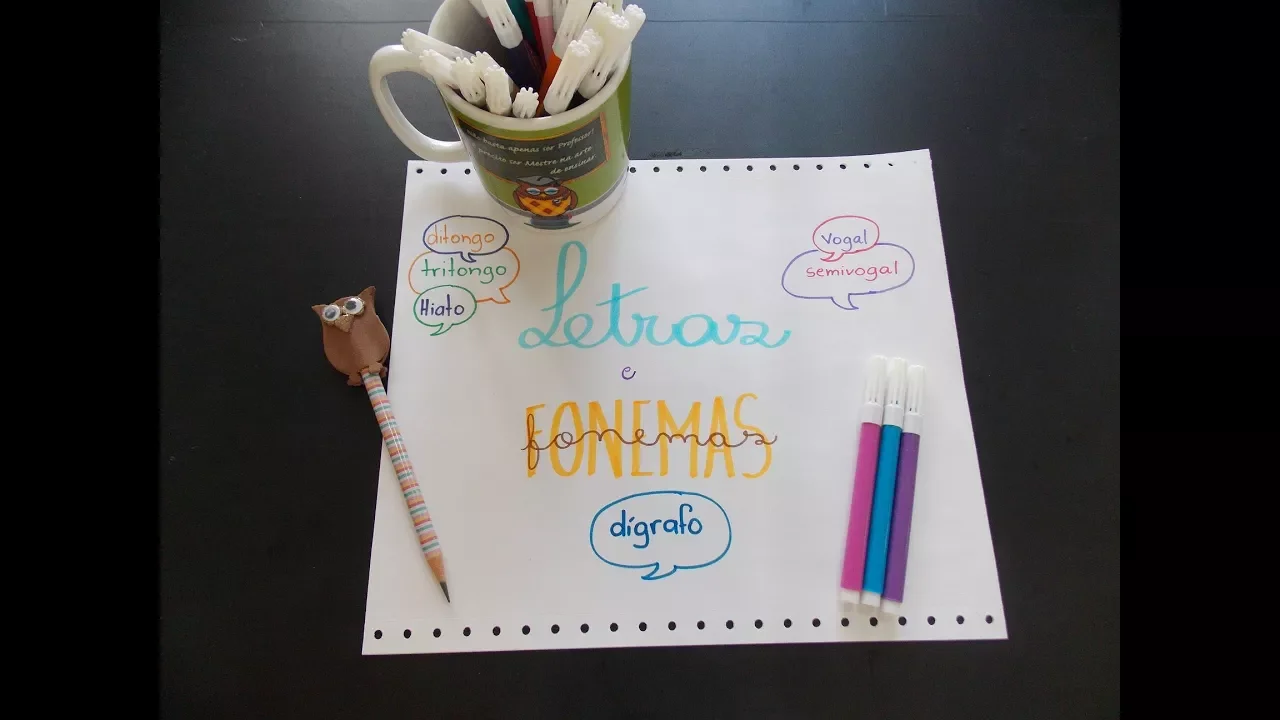 basta apenas ser Professor!
preciso ser Mestre na arte
de ensinar
ditongo
tritongo
Hiato
vogal
semivogal
Letras
e
FONEMAS
fonemas
dígrafo